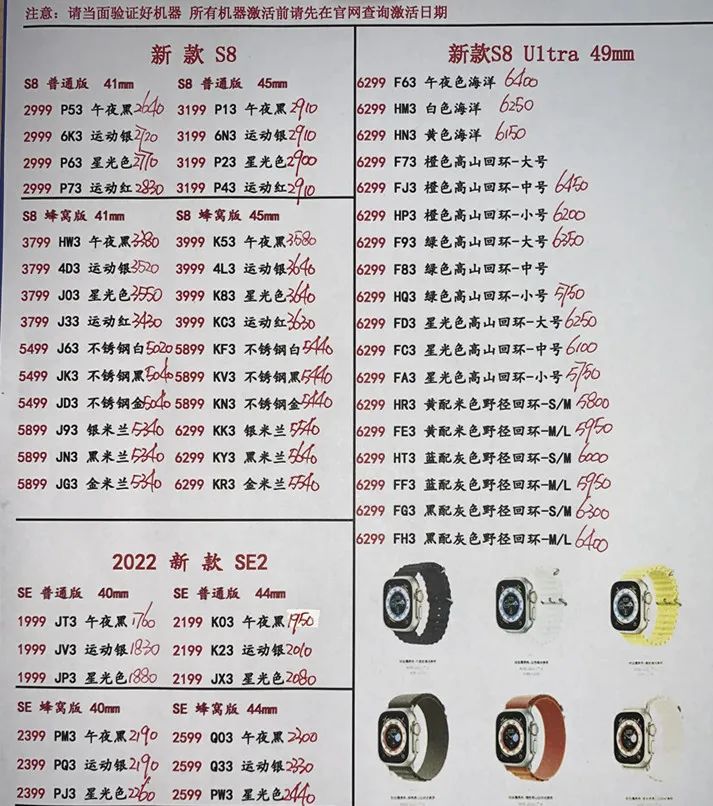 注意：请当面验证好机器 所有机器激活前请先在官网查询激活日期
新 款 S8
S8 普通版 41mm S8 普通版 45mm
2999 P53 午夜黑 2640 3199 P13 午夜黑 2910
2999 6K3 运动银 2720 3199 6N3 运动银 2910
2999 P63 星光色 2770 3199 P23 星光色 2900
2999 P73 运动红 2830 3199 P43 运动红 2910
S8 蜂窝版 41mm S8 蜂窝版 45mm
3799 HW3 午夜黑 3580 3999 K53 午夜黑 3580
3799 4D3 运动银 3520 3999 4L3 运动银 3640
3799 J03 星光色 3550 3999 K83 星光色 3640
3799 J33 运动红 3430 3999 KC3 运动红 3630
5499 J63 不锈钢白 5020 5899 KF3 不锈钢白 5440
5499 JK3 不锈钢黑 5040 5899 KV3 不锈钢黑 5440
5499 JD3 不锈钢金 5040 5899 KN3 不锈钢金 5440
5899 J93 银米兰 5340 6299 KK3 银米兰 5540
5899 JN3 黑米兰 5340 6299 KY3 黑米兰 5640
5899 JG3 金米兰 5340 6299 KR3 金米兰 5540
2022 新 款 SE2
SE 普通版 40mm SE 普通版 44mm
1999 JT3 午夜黑 1760 2199 K03 午夜黑 1950
1999 JV3 运动银 1830 2199 K23 运动银 2010
1999 JP3 星光色 1880 2199 JX3 星光色 2080
SE 蜂窝版 40mm SE 蜂窝版 44mm
2399 PM3 午夜黑 2190 2599 Q03 午夜黑 2300
2399 PQ3 运动银 2190 2599 Q33 运动银 2330
2399 PJ3 星光色 2260 2599 PW3 星光色 2440
新款S8 Ultra 49mm
6299 F63 午夜色海洋 6400
6299 HM3 白色海洋 6250
6299 HN3 黄色海洋 6150
6299 F73 橙色高山回环-大号
6299 FJ3 橙色高山回环-中号 6450
6299 HP3 橙色高山回环-小号 6200
6299 F93 绿色高山回环-大号 6350
6299 F83 绿色高山回环-中号
6299 HQ3 绿色高山回环-小号 5750
6299 FD3 星光色高山回环-大号 6250
6299 FC3 星光色高山回环-中号 6100
6299 FA3 星光色高山回环-小号 5750
6299 HR3 黄配米色野径回环-S/M 5800
6299 FE3 黄配米色野径回环-M/L 5950
6299 HT3 蓝配灰色野径回环-S/M 6000
6299 FF3 蓝配灰色野径回环-M/L 5950
6299 FG3 黑配灰色野径回环-S/M 6300
6299 FH3 黑配灰色野径回环-M/L 6400